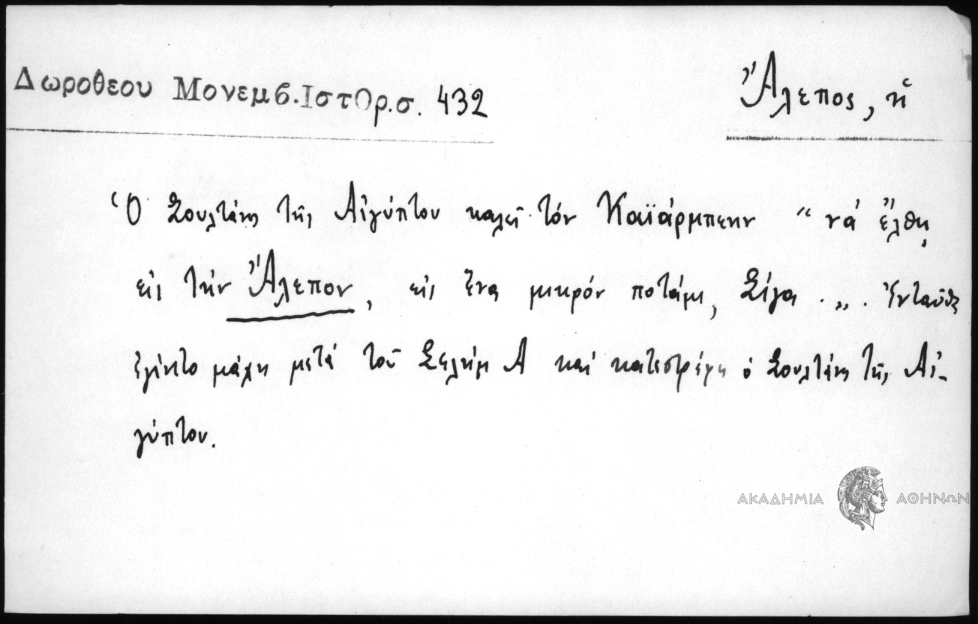 Δωροθεου Μονεμβ.Ιστορ.σ. 432
Ἄλεπος, ἡ
Ὁ Σουλτάνος τῆς Αἰγύπτου καλεῖ τόν Καϊάρμπεην "νά ἔλθη
εἰς τήν Ἄλεπον, εἰς ἕνα μικρόν ποτάμι, Σίγα . „. Ἐνταῦθα
ἐγένετο μάχη μετά τοῦ Σελήμ Α καί κατεστράφη ὁ Σουλτάνος τῆς Αἰ-
γύπτου.
ΑΚΑΔΗΜΙΑ ΑΘΗΝΩΝ